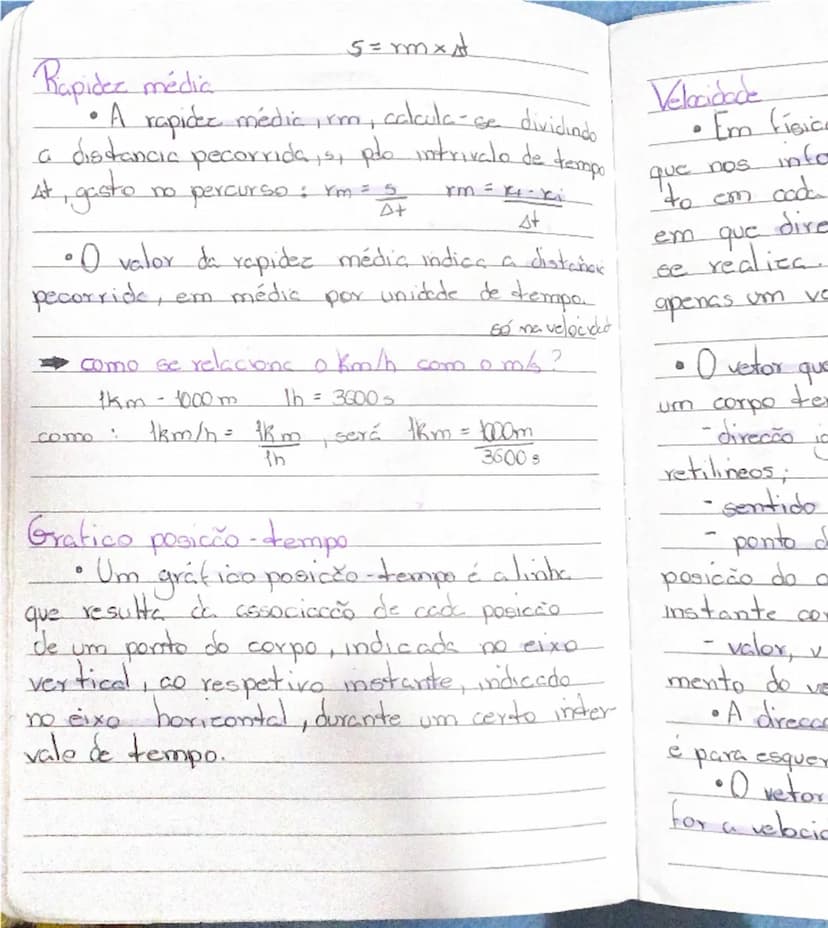 s = rm × Δt
Rapidez média
• A rapidez média, rm, calcula-se dividindo
a distância pecorrida, s, plo intrivalo de tempo
Δt, gasto no percurso : rm = s/Δt rm = xf - xi/Δt
• O valor da rapidez média indica a distância
pecorrida, em média por unidade de tempo.
só na velocidad
➡ como se relaciona o Km/h com o m/s?
1km - 1000m 1h = 3600s
como : 1km/h = 1km/1h, será 1km = 1000m/3600s
Gráfico posicção-tempo
• Um gráfico posicção-tempo é a linha
que resulta da associacção de cada posicção
de um ponto do corpo, indicada no eixo
vertical, ao respetivo instante, indicado
no eixo horizontal, durante um certo inter
valo de tempo.
Velocidade
• Em físic
que nos info
to em cada
em que dire
se realiza.
apenas um ve
• O vetor que
um corpo te
- direcão i
retilíneos;
- sentido
- ponto d
posicção do o
instante co
- valor, v
mento do ve
• A direcc
é para esquer
• O vetor
for a velocic